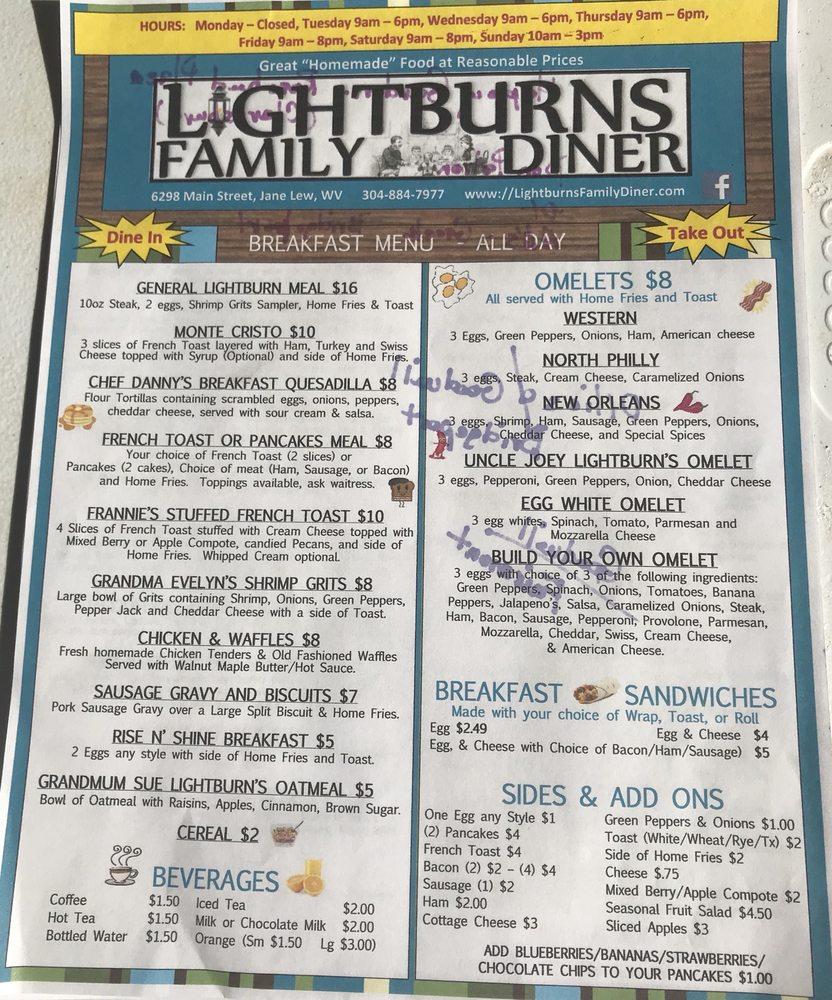 HOURS: Monday – Closed, Tuesday 9am – 6pm, Wednesday 9am – 6pm, Thursday 9am – 6pm,
Friday 9am – 8pm, Saturday 9am – 8pm, Sunday 10am – 3pm
Great "Homemade" Food at Reasonable Prices
LIGHTBURNS
FAMILY DINER
6298 Main Street, Jane Lew, WV 304-884-7977 www://LightburnsFamilyDiner.com f
Dine In
BREAKFAST MENU - ALL DAY
Take Out
GENERAL LIGHTBURN MEAL $16
10oz Steak, 2 eggs, Shrimp Grits Sampler, Home Fries & Toast
MONTE CRISTO $10
3 slices of French Toast layered with Ham, Turkey and Swiss
Cheese topped with Syrup (Optional) and side of Home Fries.
CHEF DANNY'S BREAKFAST QUESADILLA $8
Flour Tortillas containing scrambled eggs, onions, peppers,
cheddar cheese, served with sour cream & salsa.
FRENCH TOAST OR PANCAKES MEAL $8
Your choice of French Toast (2 slices) or
Pancakes (2 cakes), Choice of meat (Ham, Sausage, or Bacon)
and Home Fries. Toppings available, ask waitress.
FRANNIE'S STUFFED FRENCH TOAST $10
4 Slices of French Toast stuffed with Cream Cheese topped with
Mixed Berry or Apple Compote, candied Pecans, and side of
Home Fries. Whipped Cream optional.
GRANDMA EVELYN'S SHRIMP GRITS $8
Large bowl of Grits containing Shrimp, Onions, Green Peppers,
Pepper Jack and Cheddar Cheese with a side of Toast.
CHICKEN & WAFFLES $8
Fresh homemade Chicken Tenders & Old Fashioned Waffles
Served with Walnut Maple Butter/Hot Sauce.
SAUSAGE GRAVY AND BISCUITS $7
Pork Sausage Gravy over a Large Split Biscuit & Home Fries.
RISE N' SHINE BREAKFAST $5
2 Eggs any style with side of Home Fries and Toast.
GRANDMUM SUE LIGHTBURN'S OATMEAL $5
Bowl of Oatmeal with Raisins, Apples, Cinnamon, Brown Sugar.
CEREAL $2
BEVERAGES
Coffee $1.50 Iced Tea $2.00
Hot Tea $1.50 Milk or Chocolate Milk $2.00
Bottled Water $1.50 Orange (Sm $1.50 Lg $3.00)
OMELETS $8
All served with Home Fries and Toast
WESTERN
3 Eggs, Green Peppers, Onions, Ham, American cheese
NORTH PHILLY
3 eggs, Steak, Cream Cheese, Caramelized Onions
NEW ORLEANS
3 eggs, Shrimp, Ham, Sausage, Green Peppers, Onions,
Cheddar Cheese, and Special Spices
UNCLE JOEY LIGHTBURN'S OMELET
3 eggs, Pepperoni, Green Peppers, Onion, Cheddar Cheese
EGG WHITE OMELET
3 egg whites, Spinach, Tomato, Parmesan and
Mozzarella Cheese
BUILD YOUR OWN OMELET
3 eggs with choice of 3 of the following ingredients:
Green Peppers, Spinach, Onions, Tomatoes, Banana
Peppers, Jalapeno's, Salsa, Caramelized Onions, Steak,
Ham, Bacon, Sausage, Pepperoni, Provolone, Parmesan,
Mozzarella, Cheddar, Swiss, Cream Cheese,
& American Cheese.
BREAKFAST SANDWICHES
Made with your choice of Wrap, Toast, or Roll
Egg $2.49 Egg & Cheese $4
Egg, & Cheese with Choice of Bacon/Ham/Sausage) $5
SIDES & ADD ONS
One Egg any Style $1
(2) Pancakes $4
French Toast $4
Bacon (2) $2 – (4) $4
Sausage (1) $2
Ham $2.00
Cottage Cheese $3
Green Peppers & Onions $1.00
Toast (White/Wheat/Rye/Tx) $2
Side of Home Fries $2
Cheese $.75
Mixed Berry/Apple Compote $2
Seasonal Fruit Salad $4.50
Sliced Apples $3
ADD BLUEBERRIES/BANANAS/STRAWBERRIES/
CHOCOLATE CHIPS TO YOUR PANCAKES $1.00